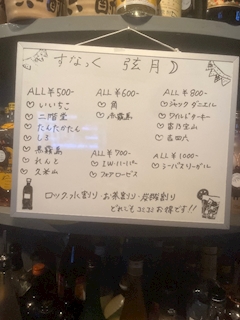 すなっく 弦月
ALL ¥500-
♡ いいちこ
♡ 二階堂
♡ たんたかたん
♡ しろ
♡ 黒霧島
♡ れんと
♡ 久米仙
ALL ¥600-
♡ 角
♡ 赤霧島
ALL ¥700-
♡ I.W.ハーパー
♡ フォアローゼズ
ALL ¥800-
♡ ジャックダニエル
♡ ワイルドターキー
♡ 富乃宝山
♡ 吉四六
ALL ¥1000-
♡ シーバスリーガル
ロック、水割り・お茶割り・炭酸割り
どれでもコミコミお得です!!